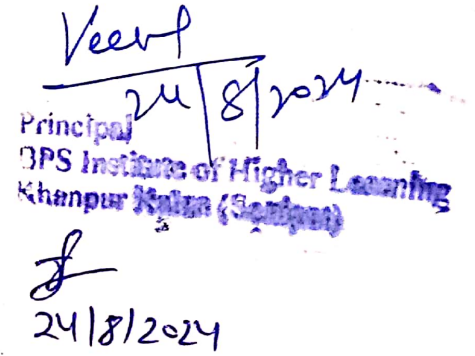 24/8/2024
Principal
BPS Institute of Higher Learning
Khanpur Kalan (Sonipat)
24/8/2024